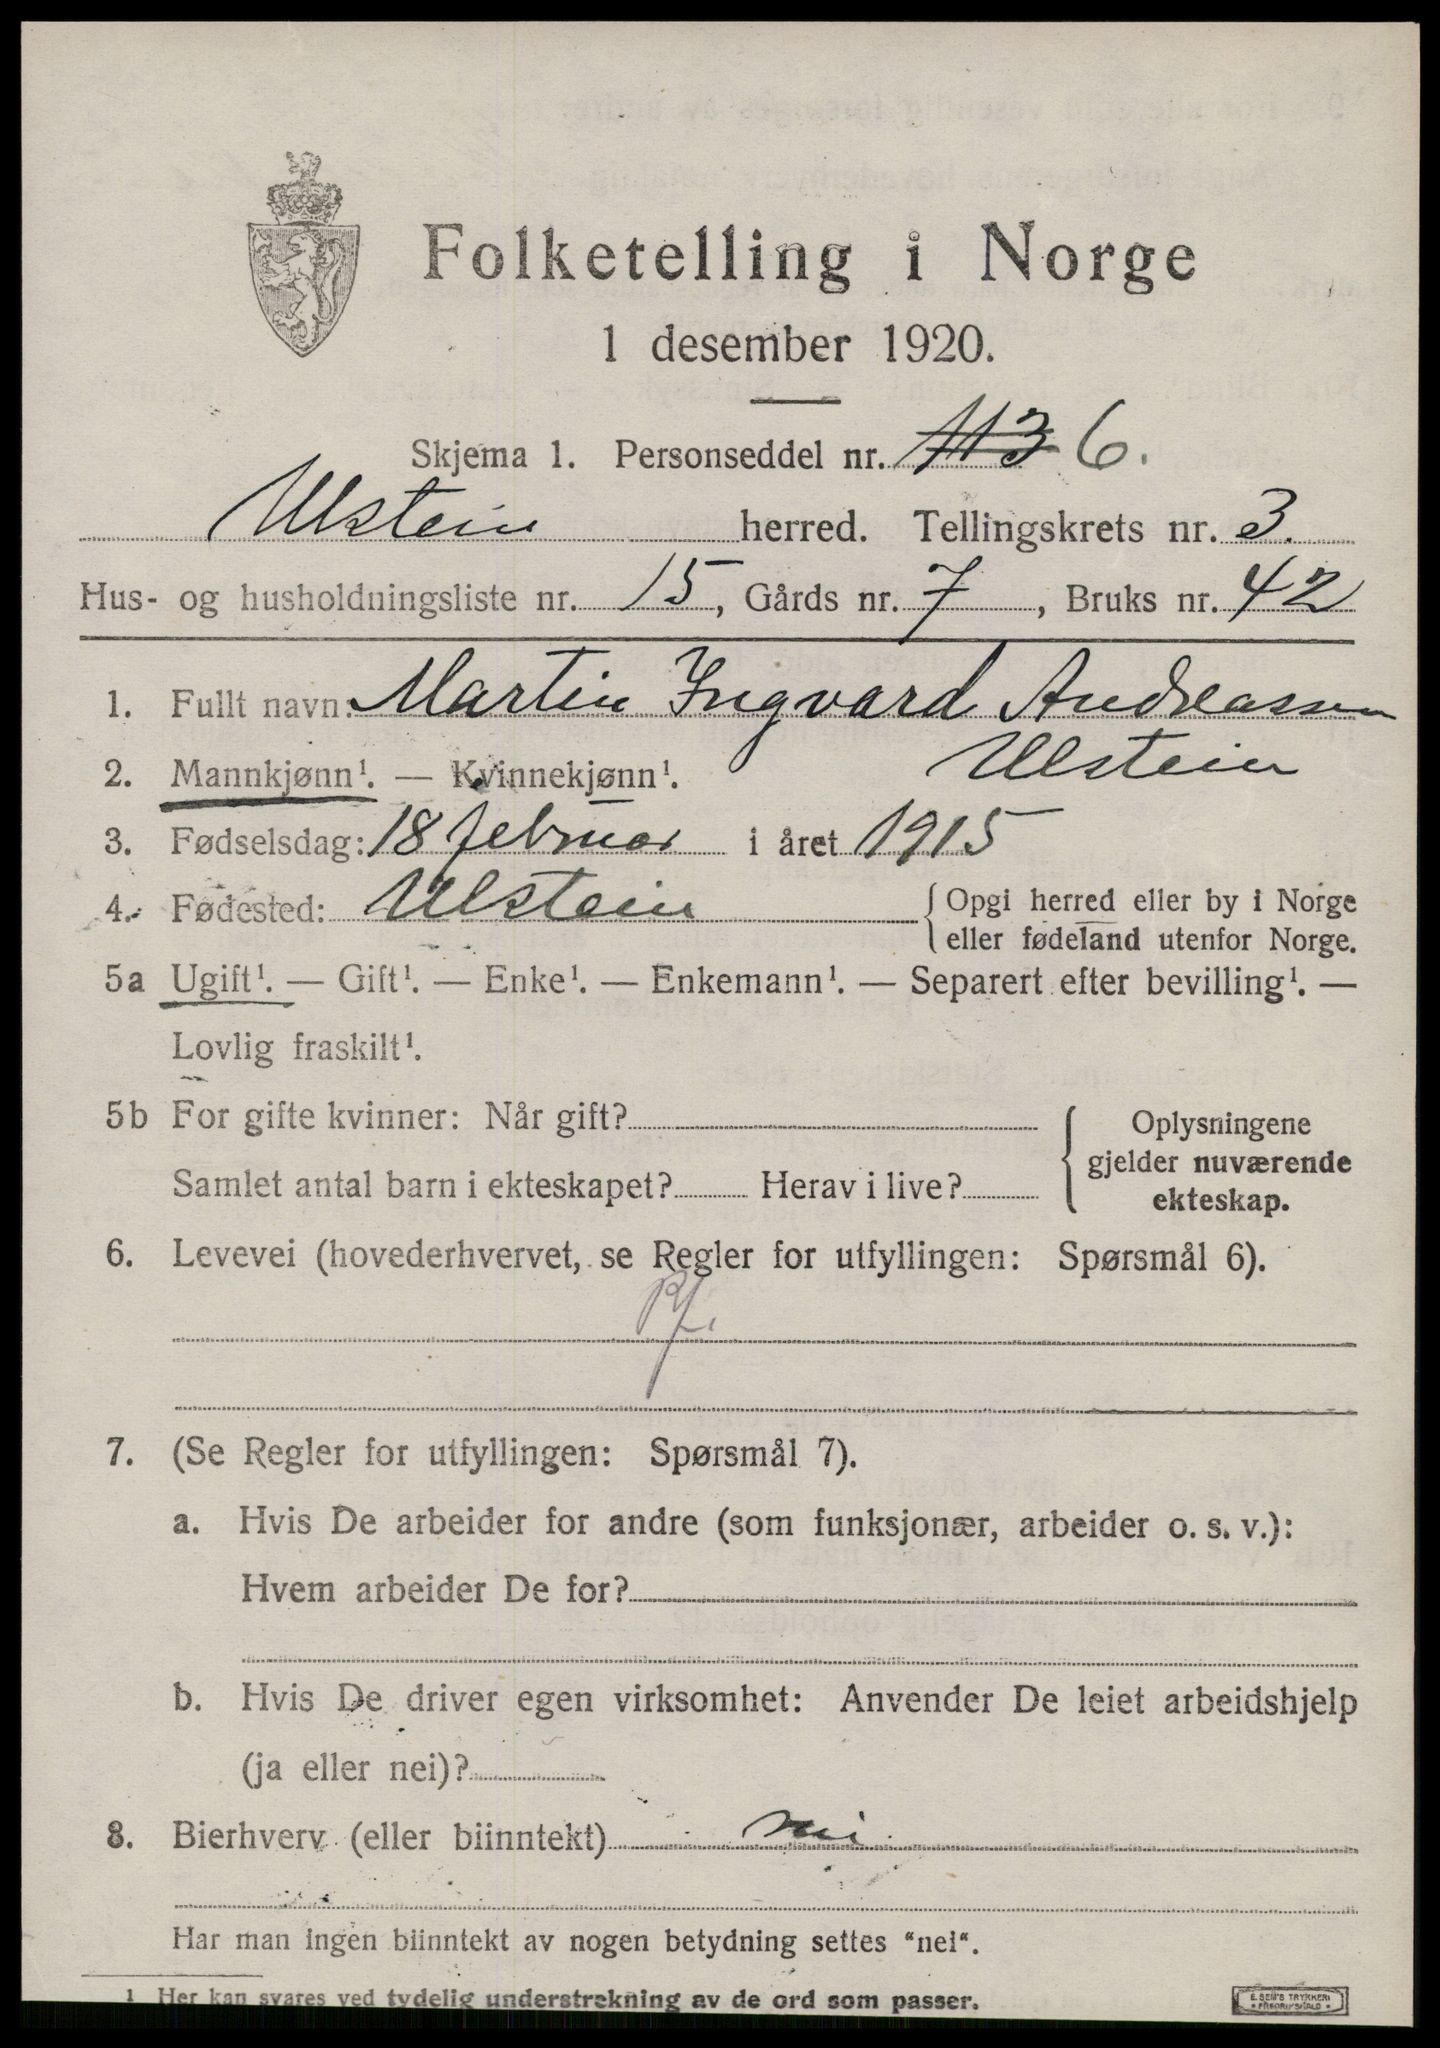 Folketelling i Norge
1 desember 1920.
Skjema 1. Personseddel nr. 113 6.
Ulstein herred. Tellingskrets nr. 3.
Hus- og husholdningsliste nr. 15, Gårds nr. 7, Bruks nr. 42
1. Fullt navn: Martin Ingvard Andreassen
Ulstein
2. Mannkjønn¹. — Kvinnekjønn¹.
3. Fødselsdag: 18 februar i året 1915
4. Fødested: Ulstein
Opgi herred eller by i Norge
eller fødeland utenfor Norge.
5a Ugift¹. — Gift¹. — Enke¹. — Enkemann¹. — Separert efter bevilling¹. —
Lovlig fraskilt¹.
5b For gifte kvinner: Når gift?
Samlet antal barn i ekteskapet? Herav i live?
Oplysningene
gjelder nuværende
ekteskap.
6. Levevei (hovederhvervet, se Regler for utfyllingen: Spørsmål 6).
7. (Se Regler for utfyllingen: Spørsmål 7).
a. Hvis De arbeider for andre (som funksjonær, arbeider o. s. v.):
Hvem arbeider De for?
b. Hvis De driver egen virksomhet: Anvender De leiet arbeidshjelp
(ja eller nei)?
8. Bierhverv (eller biinntekt) nei
Har man ingen biinntekt av nogen betydning settes "nei".
1 Her kan svares ved tydelig understrekning av de ord som passer.
E. SEM'S TRYKKERI
FREDRIKSHALD